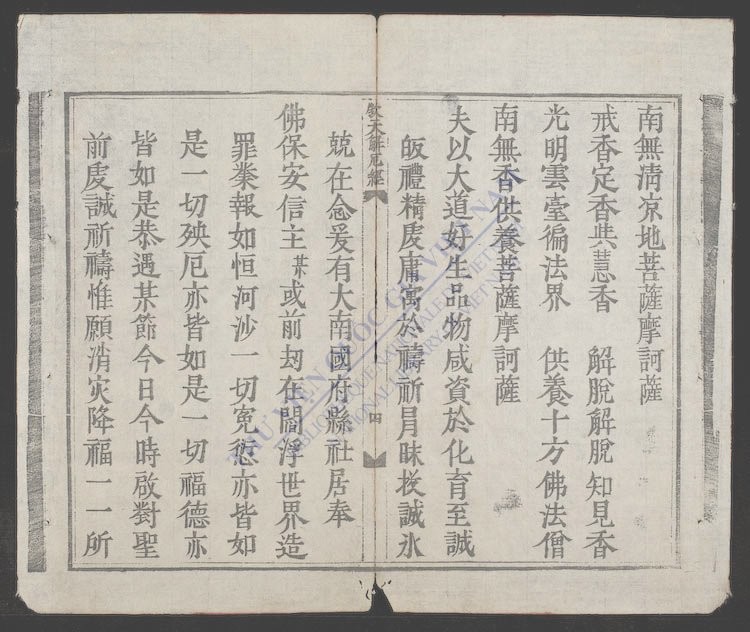 南無清凉地菩薩摩訶薩
戒香定香共慧香　解脫解脫知見香
光明雲臺徧法界　供養十方佛法僧
南無香供養菩薩摩訶薩
夫以大道好生品物咸資於化育至誠
皈禮精虔庸寓於禱祈冐昧投誠氷
救天解厄經
四
兢在念爰有大南國府縣社居奉
佛保安信主某或前刼在閻浮世界造
罪業報如恒河沙一切寃愆亦皆如
是一切殃厄亦皆如是一切福德亦
皆如是恭遇某節今日今時啟對聖
前虔誠祈禱惟願消灾降福一一所
THƯ VIỆN QUỐC GIA VIỆT NAM
BIBLIOTHÈQUE NATIONALE DU VIETNAM
NATIONAL LIBRARY OF VIETNAM